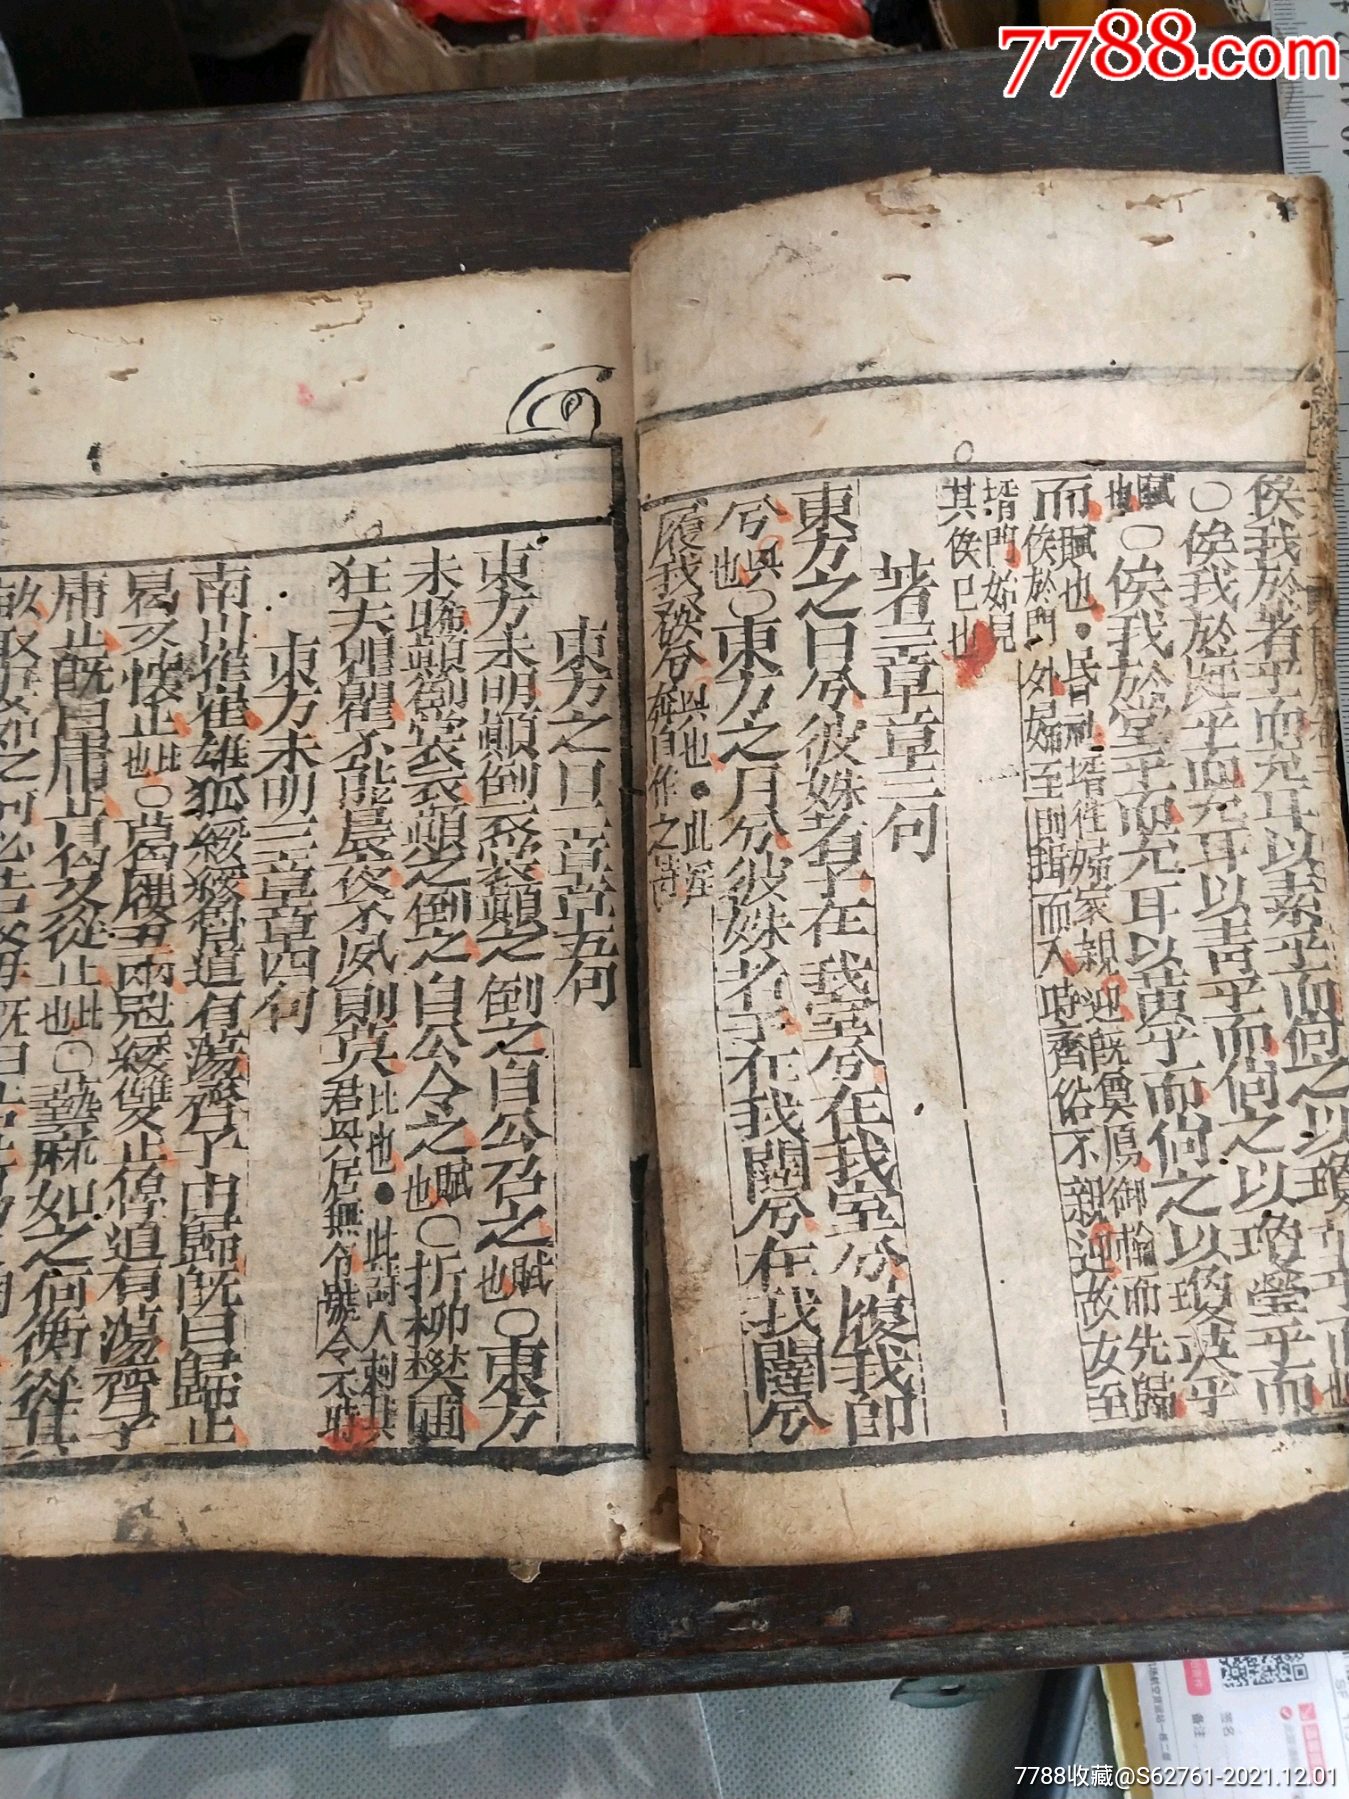 7788.com
俟我於著乎而充耳以素乎而尚之以瓊華乎而也
○俟我於庭乎而充耳以青乎而尚之以瓊瑩乎而
賦也○俟我於堂乎而充耳以黃乎而尚之以瓊英乎
而賦也●昏禮壻徃婦家親迎既奠鴈御輪而先歸
俟於門外婦至則揖而入時齊俗不親迎故女至
壻門始見
其俟已也
著三章章三句
東方之日兮彼姝者子在我室兮在我室兮履我即
兮興也○東方之月兮彼姝者子在我闥兮在我闥兮
履我發兮興也●此淫奔自作之詩
東方之日二章章五句
東方未明顛倒衣裳顛之倒之自公召之賦也○東方
未晞顛倒裳衣顛之倒之自公令之賦也○折柳樊圃
狂夫瞿瞿不能晨夜不夙則莫比也●此詩人刺其
君興居無節號令不時
東方未明三章章四句
南山崔崔雄狐綏綏魯道有蕩齊子由歸既曰歸止
曷又懷止比也○葛屨五兩冠緌雙止魯道有蕩齊子
庸止既曰庸止曷又從止比也○蓺麻如之何衡從其
畝取妻如之何必告父母既曰告止
7788收藏@S62761-2021.12.01